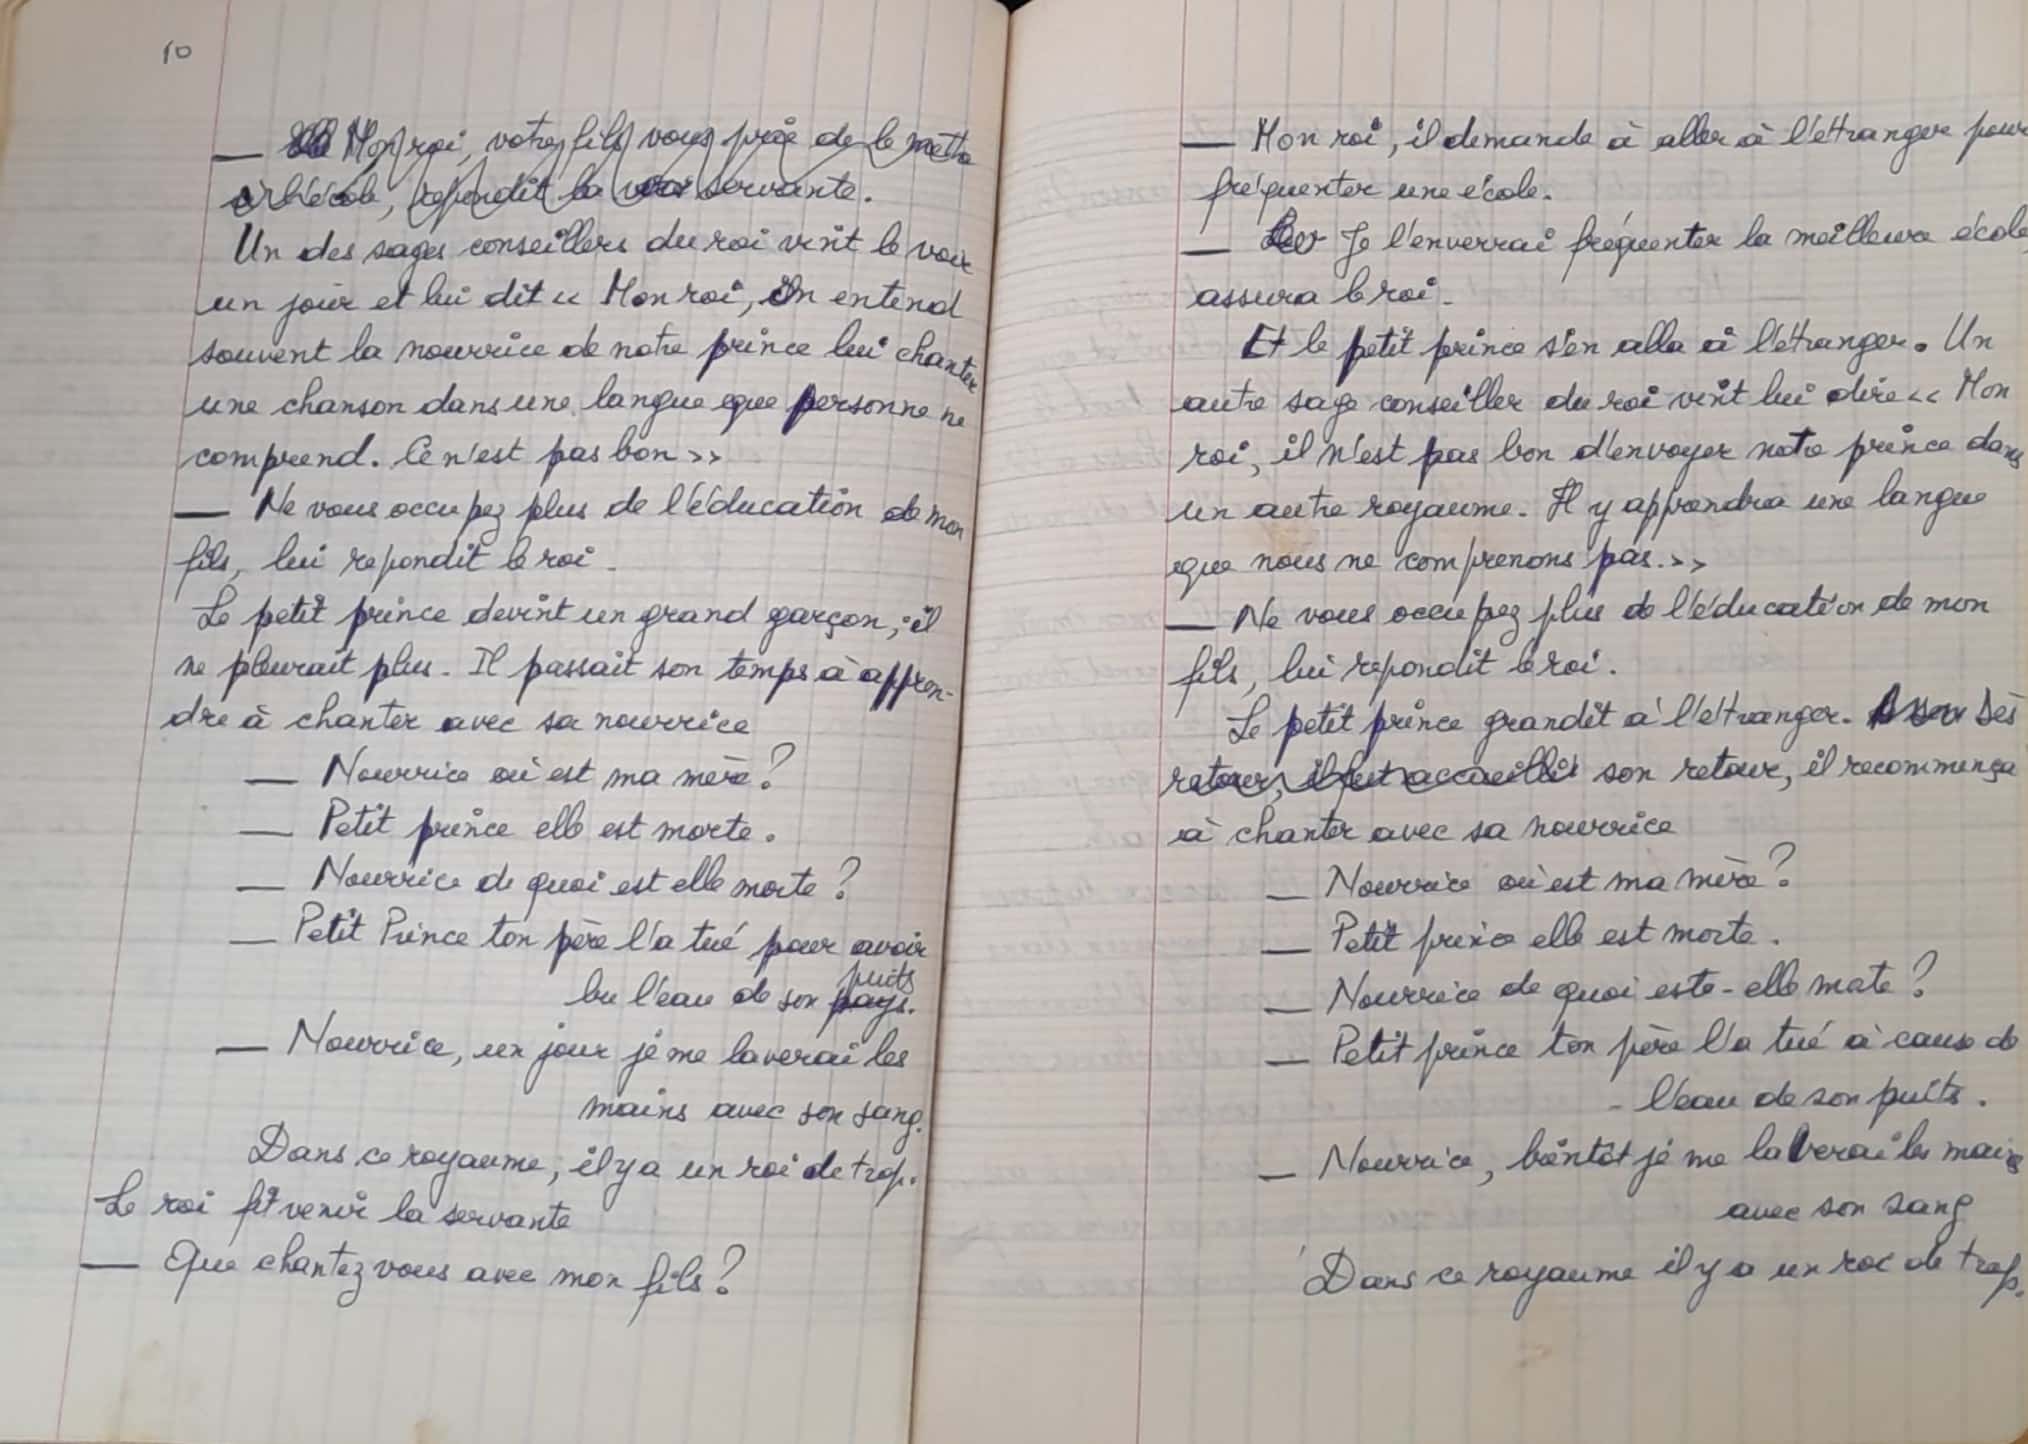 10
— Mon roi, votre fils vous prie de le mettre
à l'école, repondit la servante.
Un des sages conseillers du roi vint le voir
un jour et lui dit << Mon roi, on entend
souvent la nourrice de notre prince lui chanter
une chanson dans une langue que personne ne
comprend. Ce n'est pas bon >>
— Ne vous occupez plus de l'éducation de mon
fils, lui repondit le roi.
Le petit prince devint un grand garçon, il
ne pleurait plus. Il passait son temps à appren-
dre à chanter avec sa nourrice
— Nourrice où est ma mère ?
— Petit prince elle est morte.
— Nourrice de quoi est elle morte ?
— Petit Prince ton père l'a tué pour avoir
puits
bu l'eau de son pays.
— Nourrice, un jour je me laverai les
mains avec son sang.
Dans ce royaume, il y a un roi de trop.
Le roi fit venir la servante
— Que chantez vous avec mon fils ?
— Mon roi, il demande à aller à l'étranger pour
fréquenter une école.
— Je l'enverrai fréquenter la meilleure école
assura le roi.
Et le petit prince s'en alla à l'étranger. Un
autre sage conseiller du roi vint lui dire << Mon
roi, il n'est pas bon d'envoyer notre prince dans
un autre royaume. Il y apprendra une langue
que nous ne comprenons pas. >>
— Ne vous occupez plus de l'éducation de mon
fils, lui repondit le roi.
Le petit prince grandit à l'étranger. Dès
retour, il fut accueilli son retour, il recommença
à chanter avec sa nourrice
— Nourrice où est ma mère ?
— Petit prince elle est morte.
— Nourrice de quoi este-elle mote ?
— Petit prince ton père l'a tué à cause de
l'eau de son puits.
— Nourrice, bientôt je me laverai les mains
avec son sang
Dans ce royaume il y a un roi de trop.